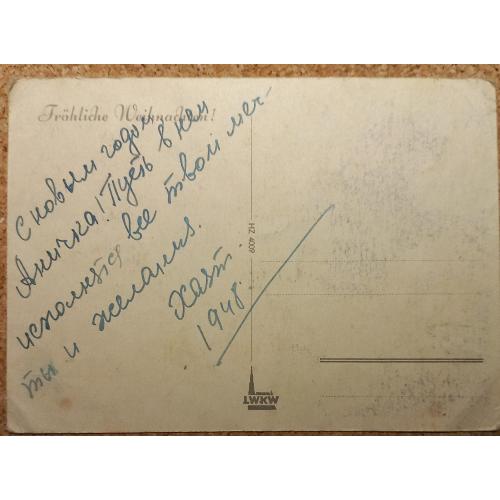 Fröhliche Weihnachten!
С новым годом
Аничка! Пусть в нем
исполнятся все твои меч-
ты и желания.
Хаят.
1948.
HZ 4009
LWKW